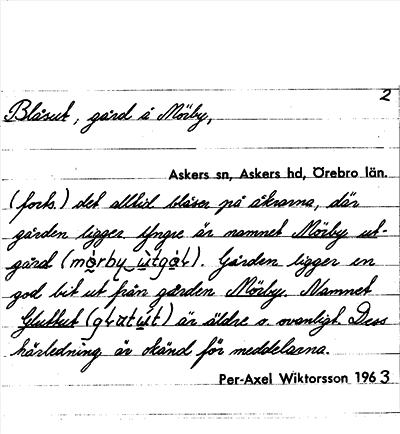 2
Blåsut, gård å Mörby,
Askers sn, Askers hd, Örebro län.
(forts.) det alltid blåser på åkrarna, där
gården ligger. Yngre är namnet Mörby ut-
gård (mörby ùtgǻɫ). Gården ligger en
god bit ut från gården Mörby. Namnet
Gluttut (gɫɑtút) är äldre o. ovanligt. Dess
härledning är okänd för meddelarna.
Per-Axel Wiktorsson 1963